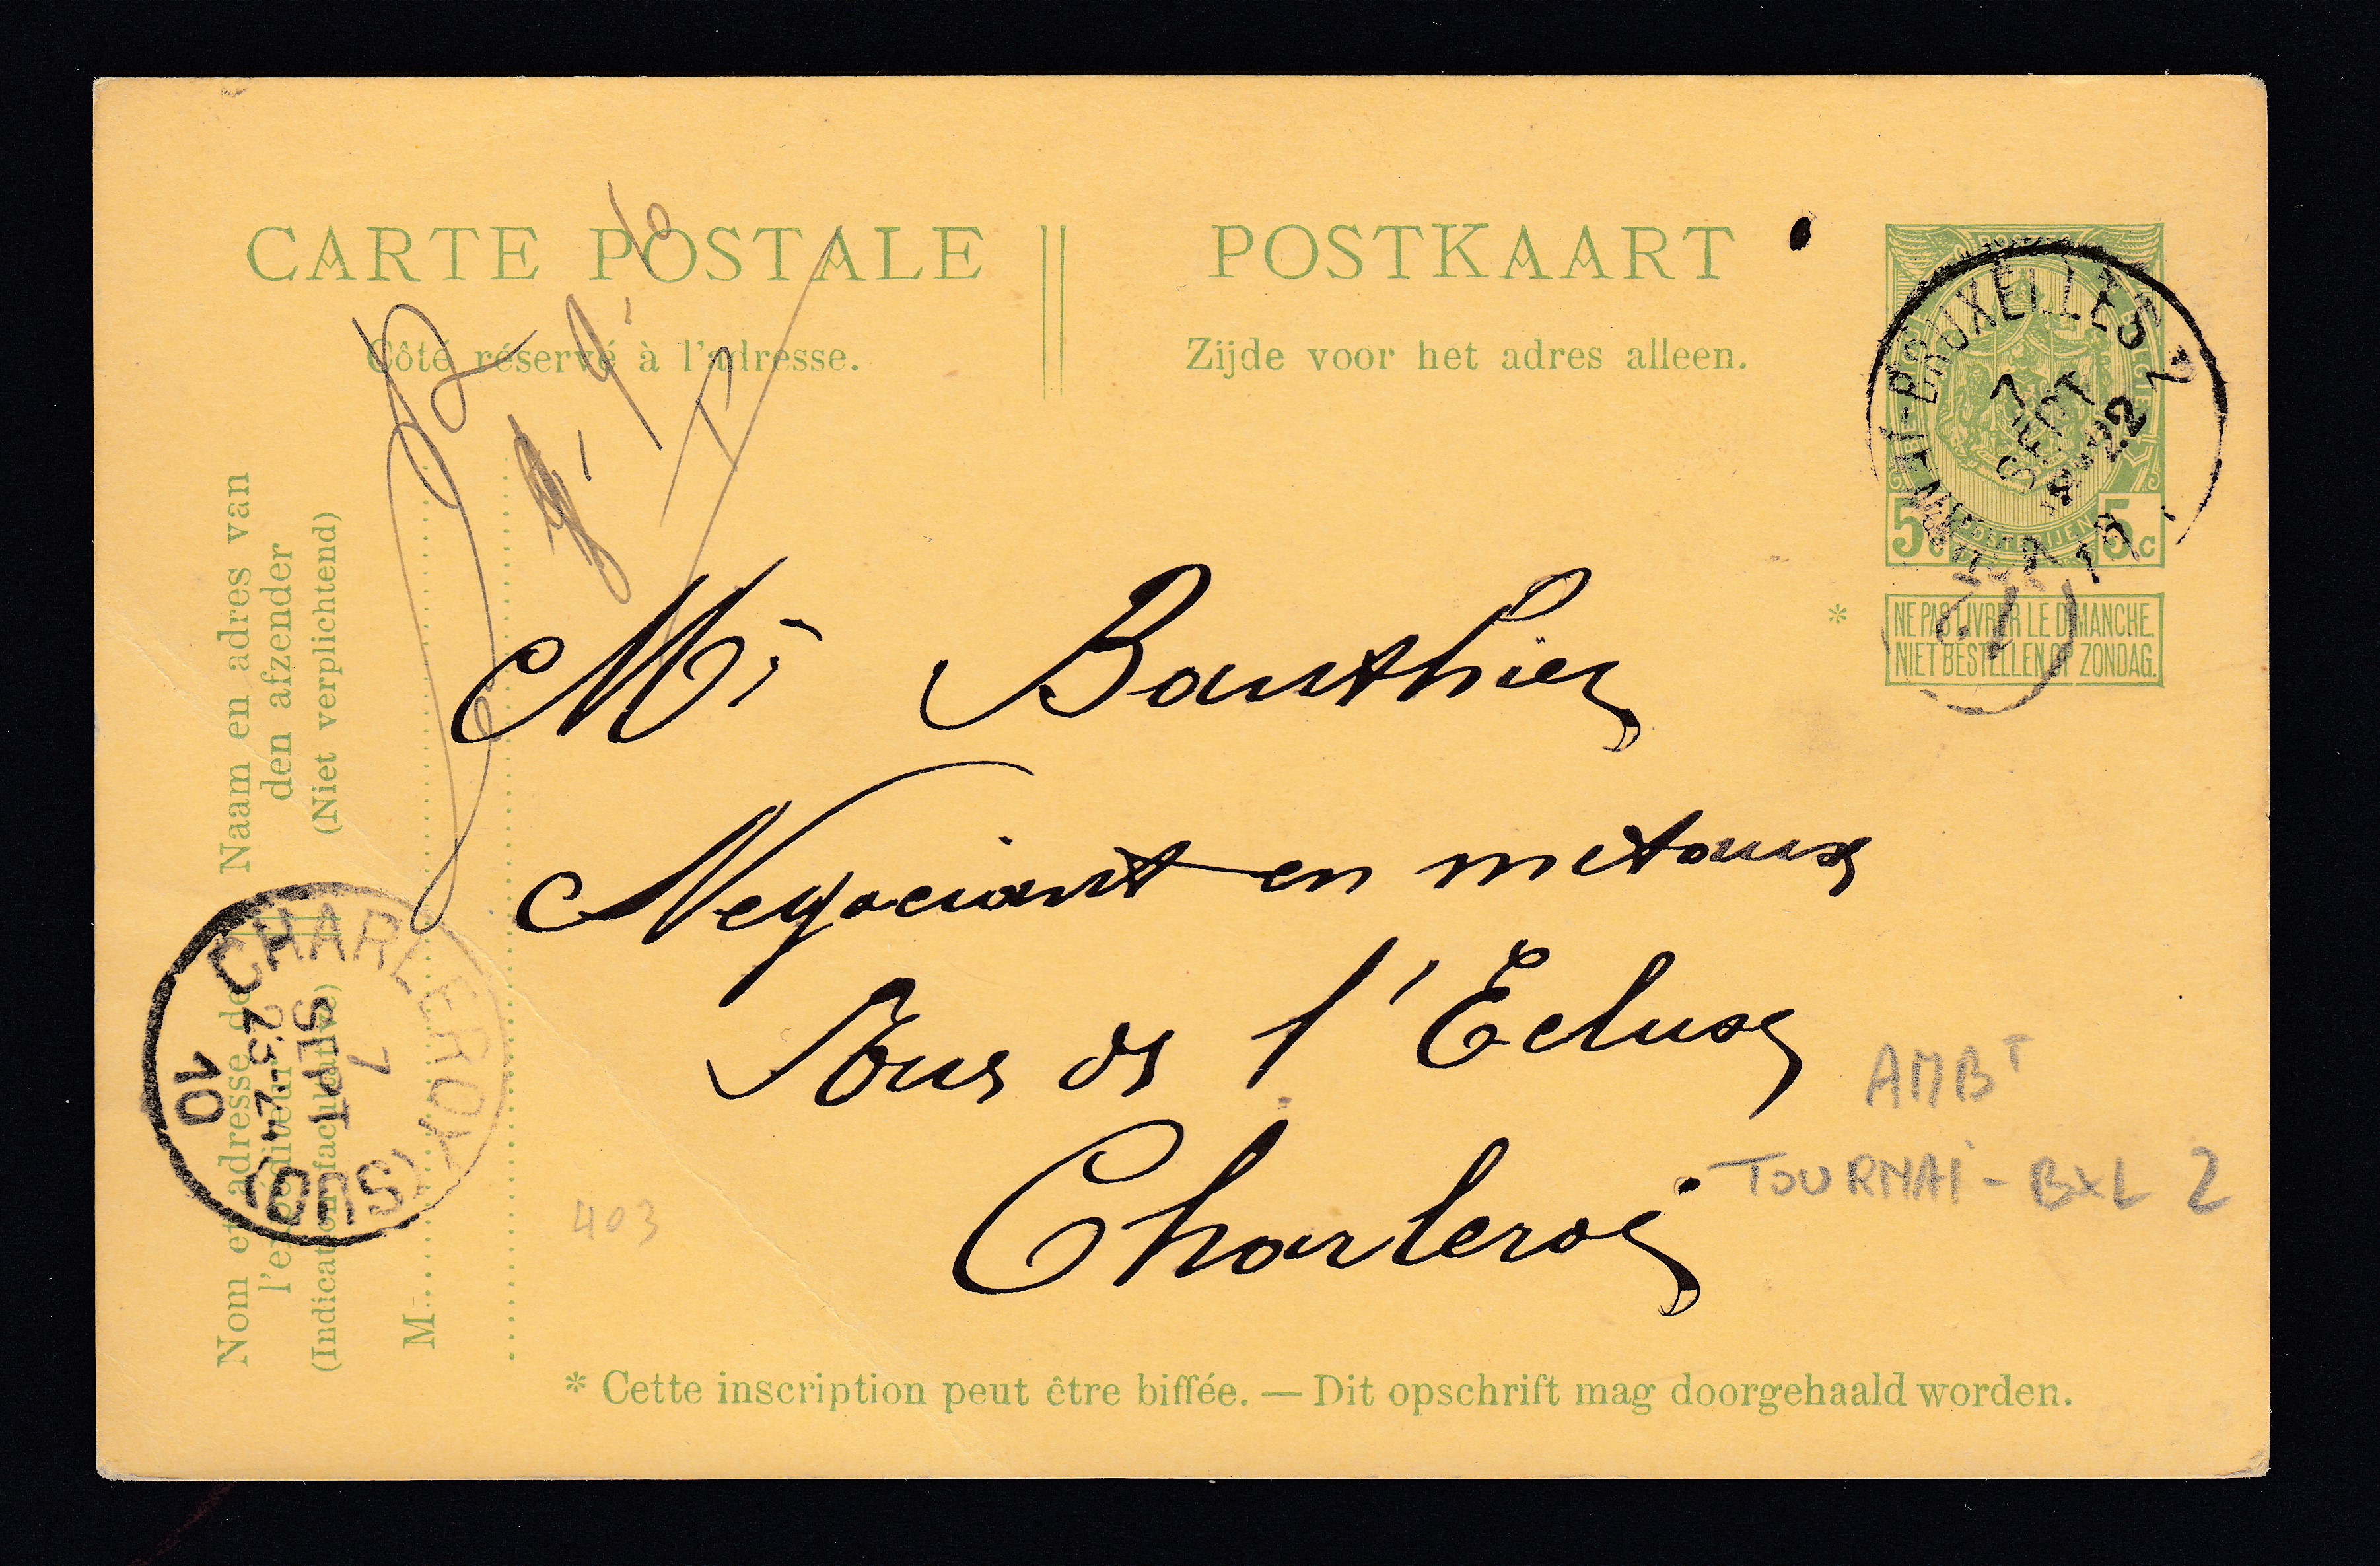 CARTE POSTALE
POSTKAART
Côté réservé à l'adresse.
Zijde voor het adres alleen.
BELGIE
5c 5c
NE PAS LIVRER LE DIMANCHE.
NIET BESTELLEN OP ZONDAG.
*
BRUXELLES 2
7
SEPT
22
10
Naam en adres van
den afzender
(Niet verplichtend)
Nom et adresse de
l'expéditeur
(Indication facultative)
M
Mr Bauthier
Negociant en metaux
Rue de l'Ecluse
Charleroi
CHARLEROY (SUD)
7
SEPT
23-24
10
403
AMBT
TOURNAI - BXL 2
* Cette inscription peut être biffée. — Dit opschrift mag doorgehaald worden.